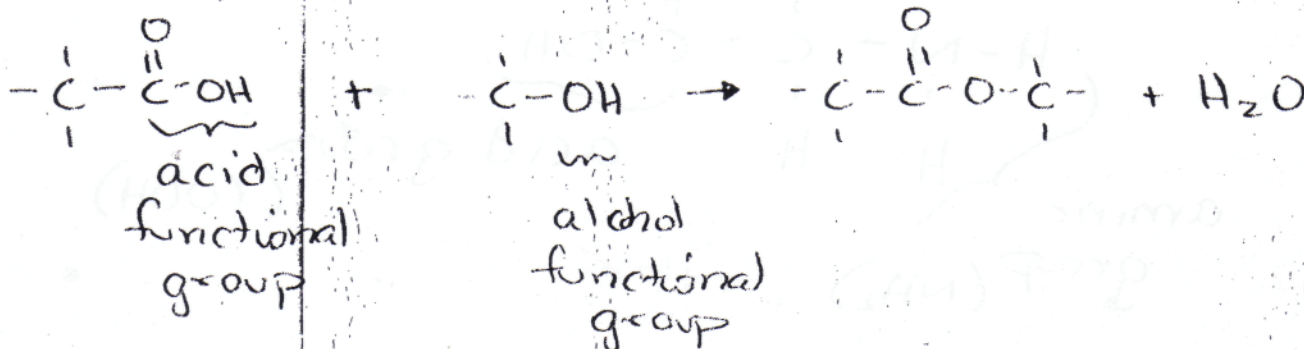 O O
-C-C-OH + -C-OH → -C-C-O-C- + H₂O
acid
functional
group
alchol
functional
group